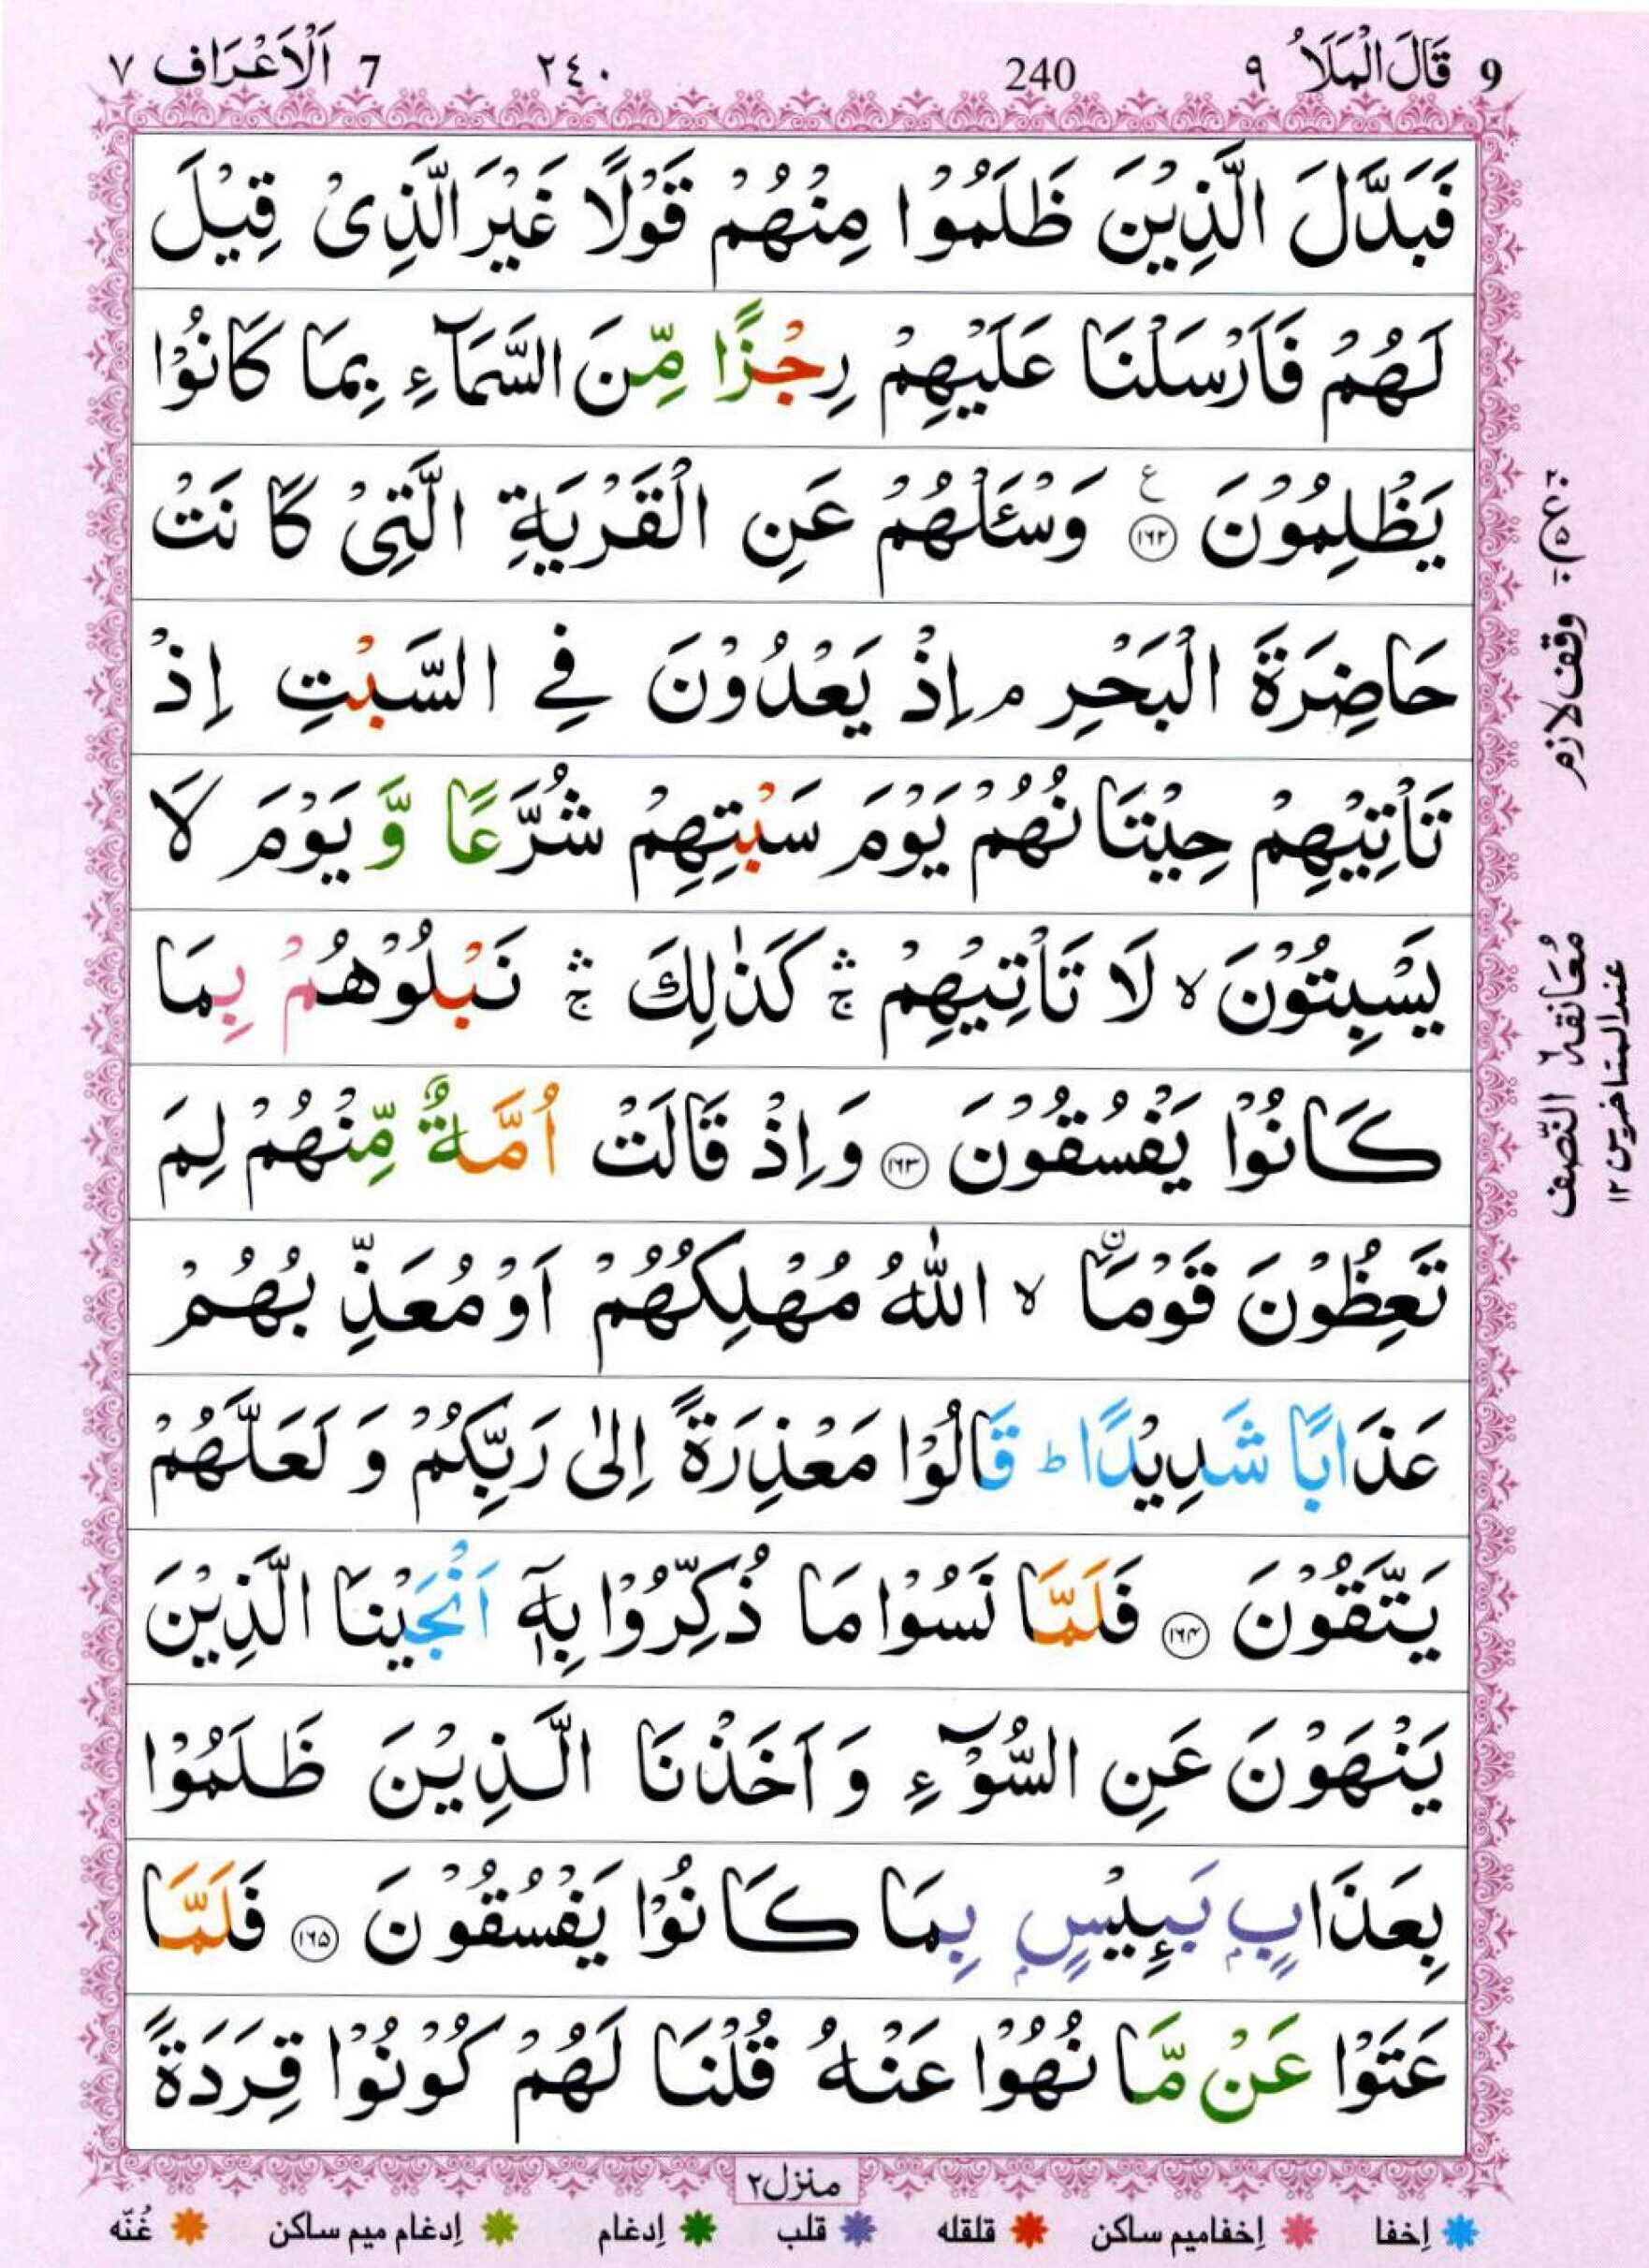 9 قَالَ الْمَلَاُ ٩ 240 ٢٤٠ 7 اَلْاَعْرَاف ٧
فَبَدَّلَ الَّذِيْنَ ظَلَمُوْا مِنْهُمْ قَوْلًا غَيْرَ الَّذِىْ قِيْلَ
لَهُمْ فَاَرْسَلْنَا عَلَيْهِمْ رِجْزًا مِّنَ السَّمَآءِ بِمَا كَانُوْا
يَظْلِمُوْنَ ۝۱۶۲ ع وَسْئَلْهُمْ عَنِ الْقَرْيَةِ الَّتِىْ كَانَتْ
حَاضِرَةَ الْبَحْرِ م اِذْ يَعْدُوْنَ فِى السَّبْتِ اِذْ
تَاْتِيْهِمْ حِيْتَانُهُمْ يَوْمَ سَبْتِهِمْ شُرَّعًا وَّ يَوْمَ لَا
يَسْبِتُوْنَ ۙ لَا تَاْتِيْهِمْ ۛۚ كَذٰلِكَ ۛۚ نَبْلُوْهُمْ بِمَا
كَانُوْا يَفْسُقُوْنَ ۝۱۶۳ وَاِذْ قَالَتْ اُمَّةٌ مِّنْهُمْ لِمَ
تَعِظُوْنَ قَوْمَاۨ ۙ اللّٰهُ مُهْلِكُهُمْ اَوْ مُعَذِّبُهُمْ
عَذَابًا شَدِيْدًا ؕ قَالُوْا مَعْذِرَةً اِلٰى رَبِّكُمْ وَ لَعَلَّهُمْ
يَتَّقُوْنَ ۝۱۶۴ فَلَمَّا نَسُوْا مَا ذُكِّرُوْا بِهٖٓ اَنْجَيْنَا الَّذِيْنَ
يَنْهَوْنَ عَنِ السُّوْٓءِ وَ اَخَذْنَا الَّذِيْنَ ظَلَمُوْا
بِعَذَابٍۭ بَـِٕيْسٍۭ بِمَا كَانُوْا يَفْسُقُوْنَ ۝۱۶۵ فَلَمَّا
عَتَوْا عَنْ مَّا نُهُوْا عَنْهُ قُلْنَا لَهُمْ كُوْنُوْا قِرَدَةً
منزل٢
إخفا إخفاميم ساكن قلقله قلب إدغام إدغام ميم ساكن غُنّه
وقف لازم
معانقة النّصف
عند المتأخرين ١٢